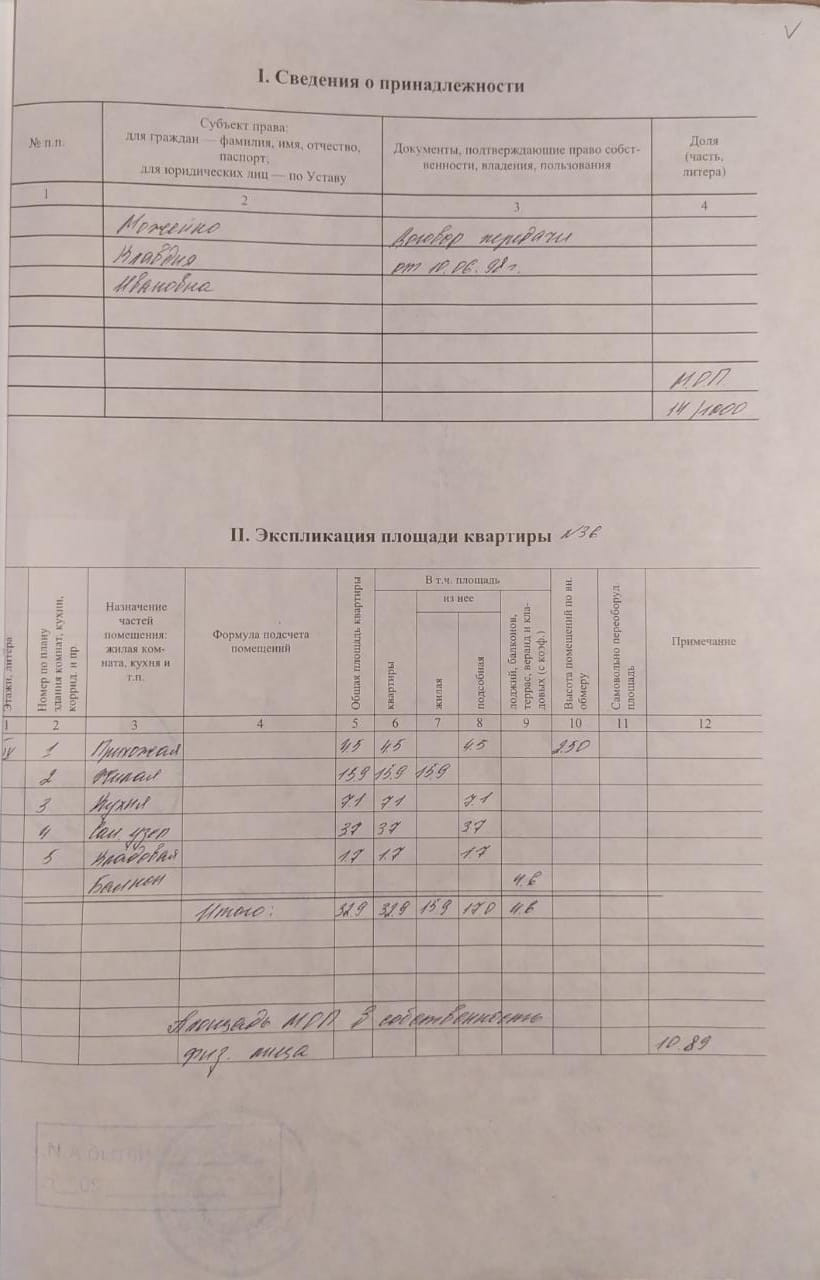 I. Сведения о принадлежности
№ п.п.
Субъект права:
для граждан — фамилия, имя, отчество,
паспорт;
для юридических лиц — по Уставу
Документы, подтверждающие право собст-
венности, владения, пользования
Доля
(часть,
литера)
1 2 3 4
Можейко Договор передачи
Клавдия от 10.06.98 г.
Ивановна
М.О.П
14/1000
II. Экспликация площади квартиры №36
Этажи, литера
Номер по плану
здания комнат, кухни,
коррид. и пр
Назначение
частей
помещения:
жилая ком-
ната, кухня и
т.п.
Формула подсчета
помещений
Общая площадь квартиры
В т.ч. площадь
квартиры
из нее
жилая
подсобная
лоджий, балконов,
террас, веранд и кла-
довых (с коэф.)
Высота помещений по вн.
обмеру
Самовольно переоборуд.
площадь
Примечание
1 2 3 4 5 6 7 8 9 10 11 12
IV 1 Прихожая 4.5 4.5 4.5 2.50
2 Жилая 15.9 15.9 15.9
3 Кухня 7.1 7.1 7.1
4 Сан. узел 3.7 3.7 3.7
5 Кладовая 1.7 1.7 1.7
Балкон 4.6
Итого: 32.9 32.9 15.9 17.0 4.6
Площадь МОП в собственность
физ. лица 10.89